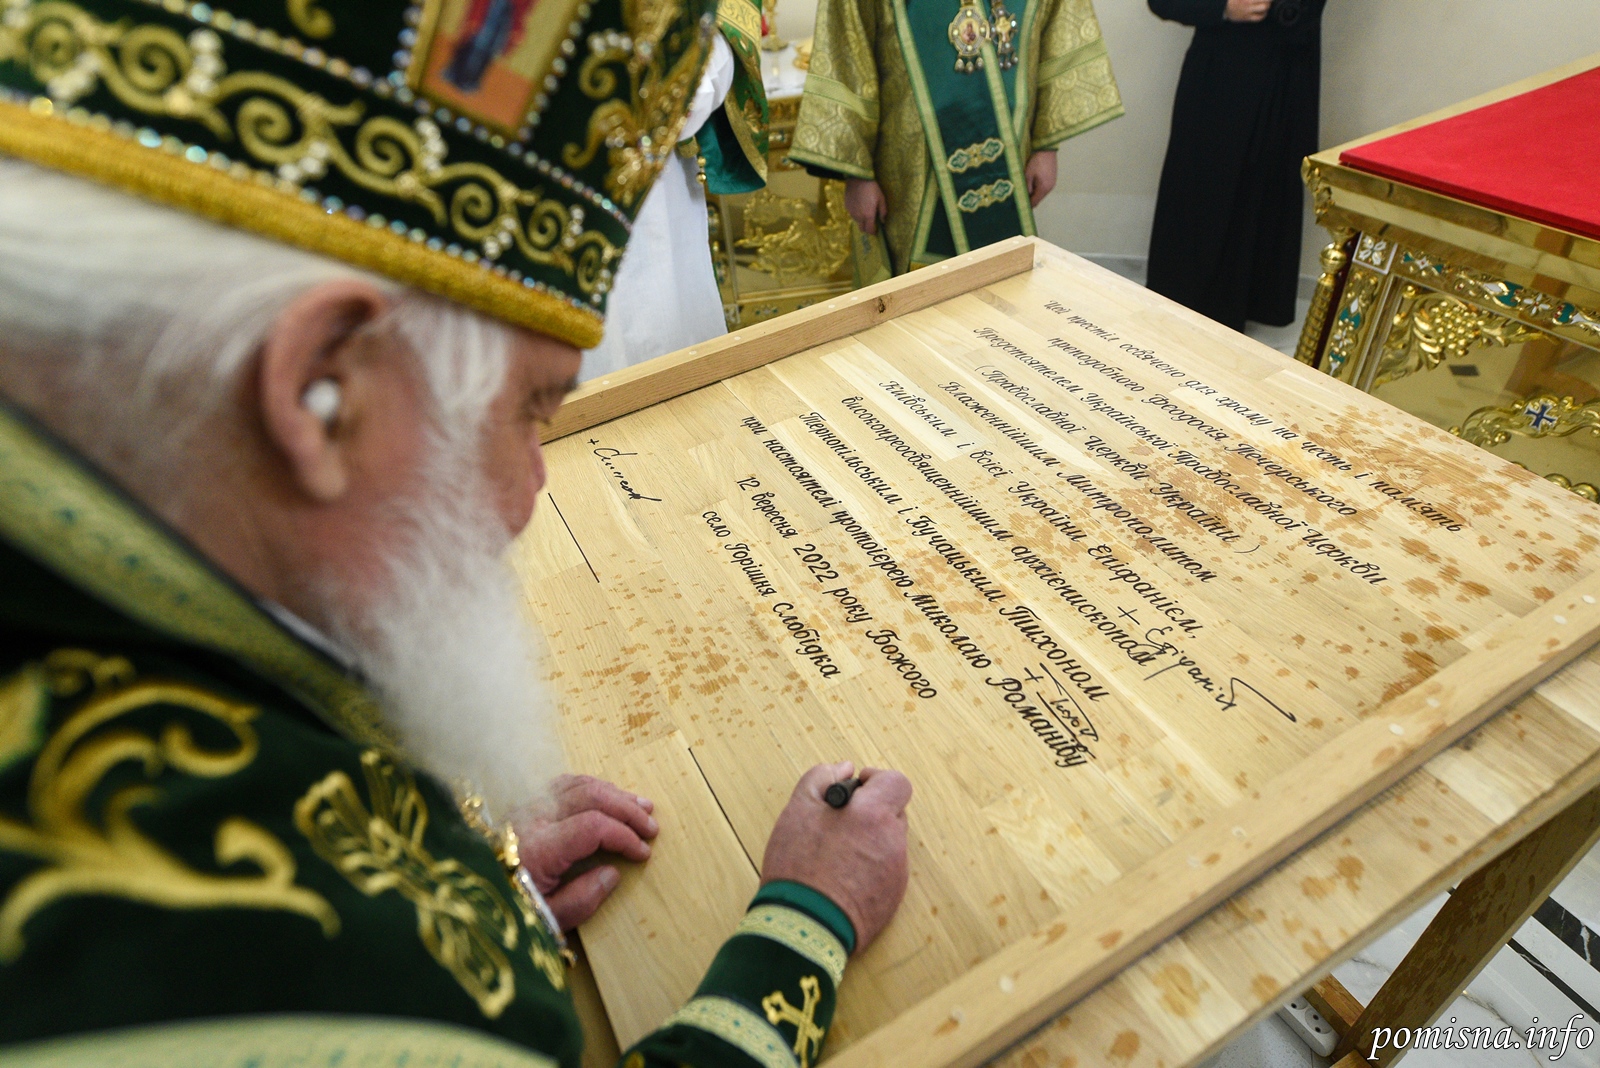 Цей престіл освячено для храму на честь і память
преподобного Феодосія Печерського
Предстоятелем Української Православної Церкви
(Православної Церкви України)
Блаженнійшим Митрополитом
Київським і всієї України Епіфанієм,
+ Епіфаній
високопреосвященнійшим архієпископом
Тернопільським і Бучацьким Тихоном
+ Тихон
при настоятелі протоієрею Миколаю Романіву
12 вересня 2022 року Божого
село Горішня Слобідка
pomisna.info